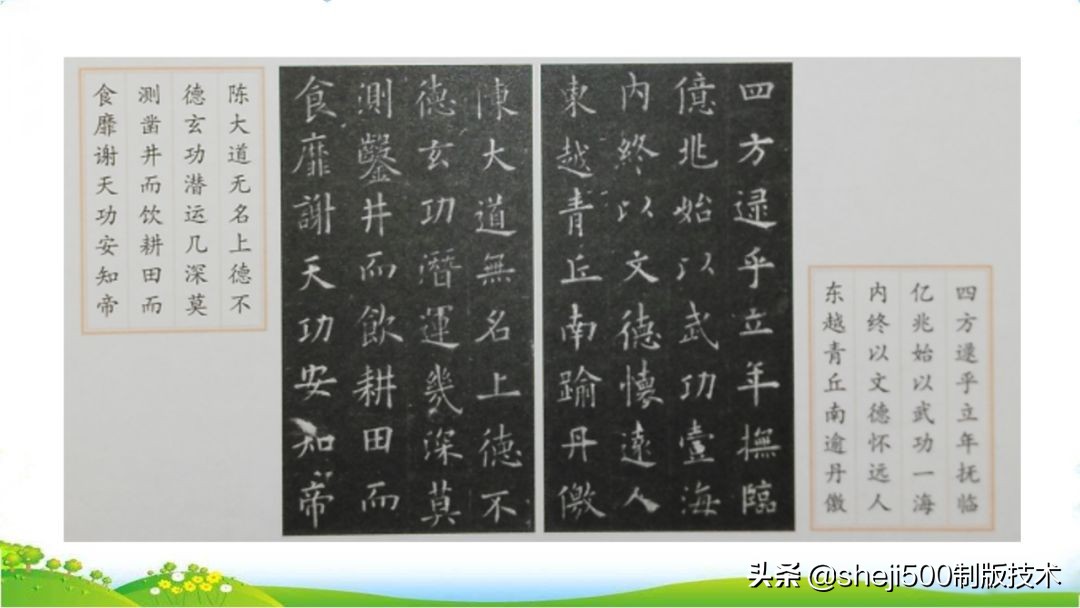 四方逮乎立年抚临
亿兆始以武功一海
内终以文德怀远人
东越青丘南逾丹徼
四方逮乎立年撫臨
億兆始以武功壹海
内終以文德懷遠人
東越青丘南踰丹儌
陳大道無名上德不
德玄功潛運幾深莫
測鑿井而飲耕田而
食靡謝天功安知帝
陈大道无名上德不
德玄功潜运几深莫
测凿井而饮耕田而
食靡谢天功安知帝
头条 @sheji500制版技术